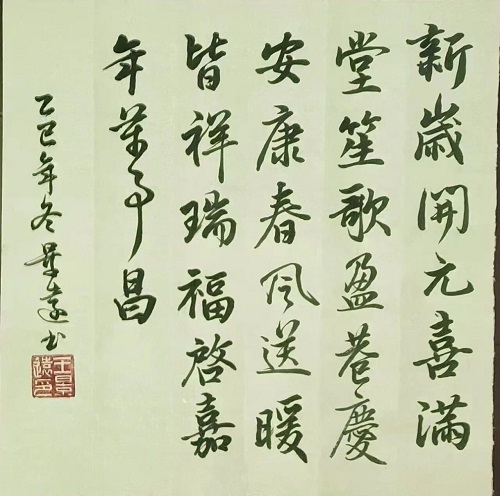 新歲開元喜滿
堂笙歌盈巷慶
安康春風送暖
皆祥瑞福啓嘉
年萬事昌
乙巳年冬景遠書
王景遠印